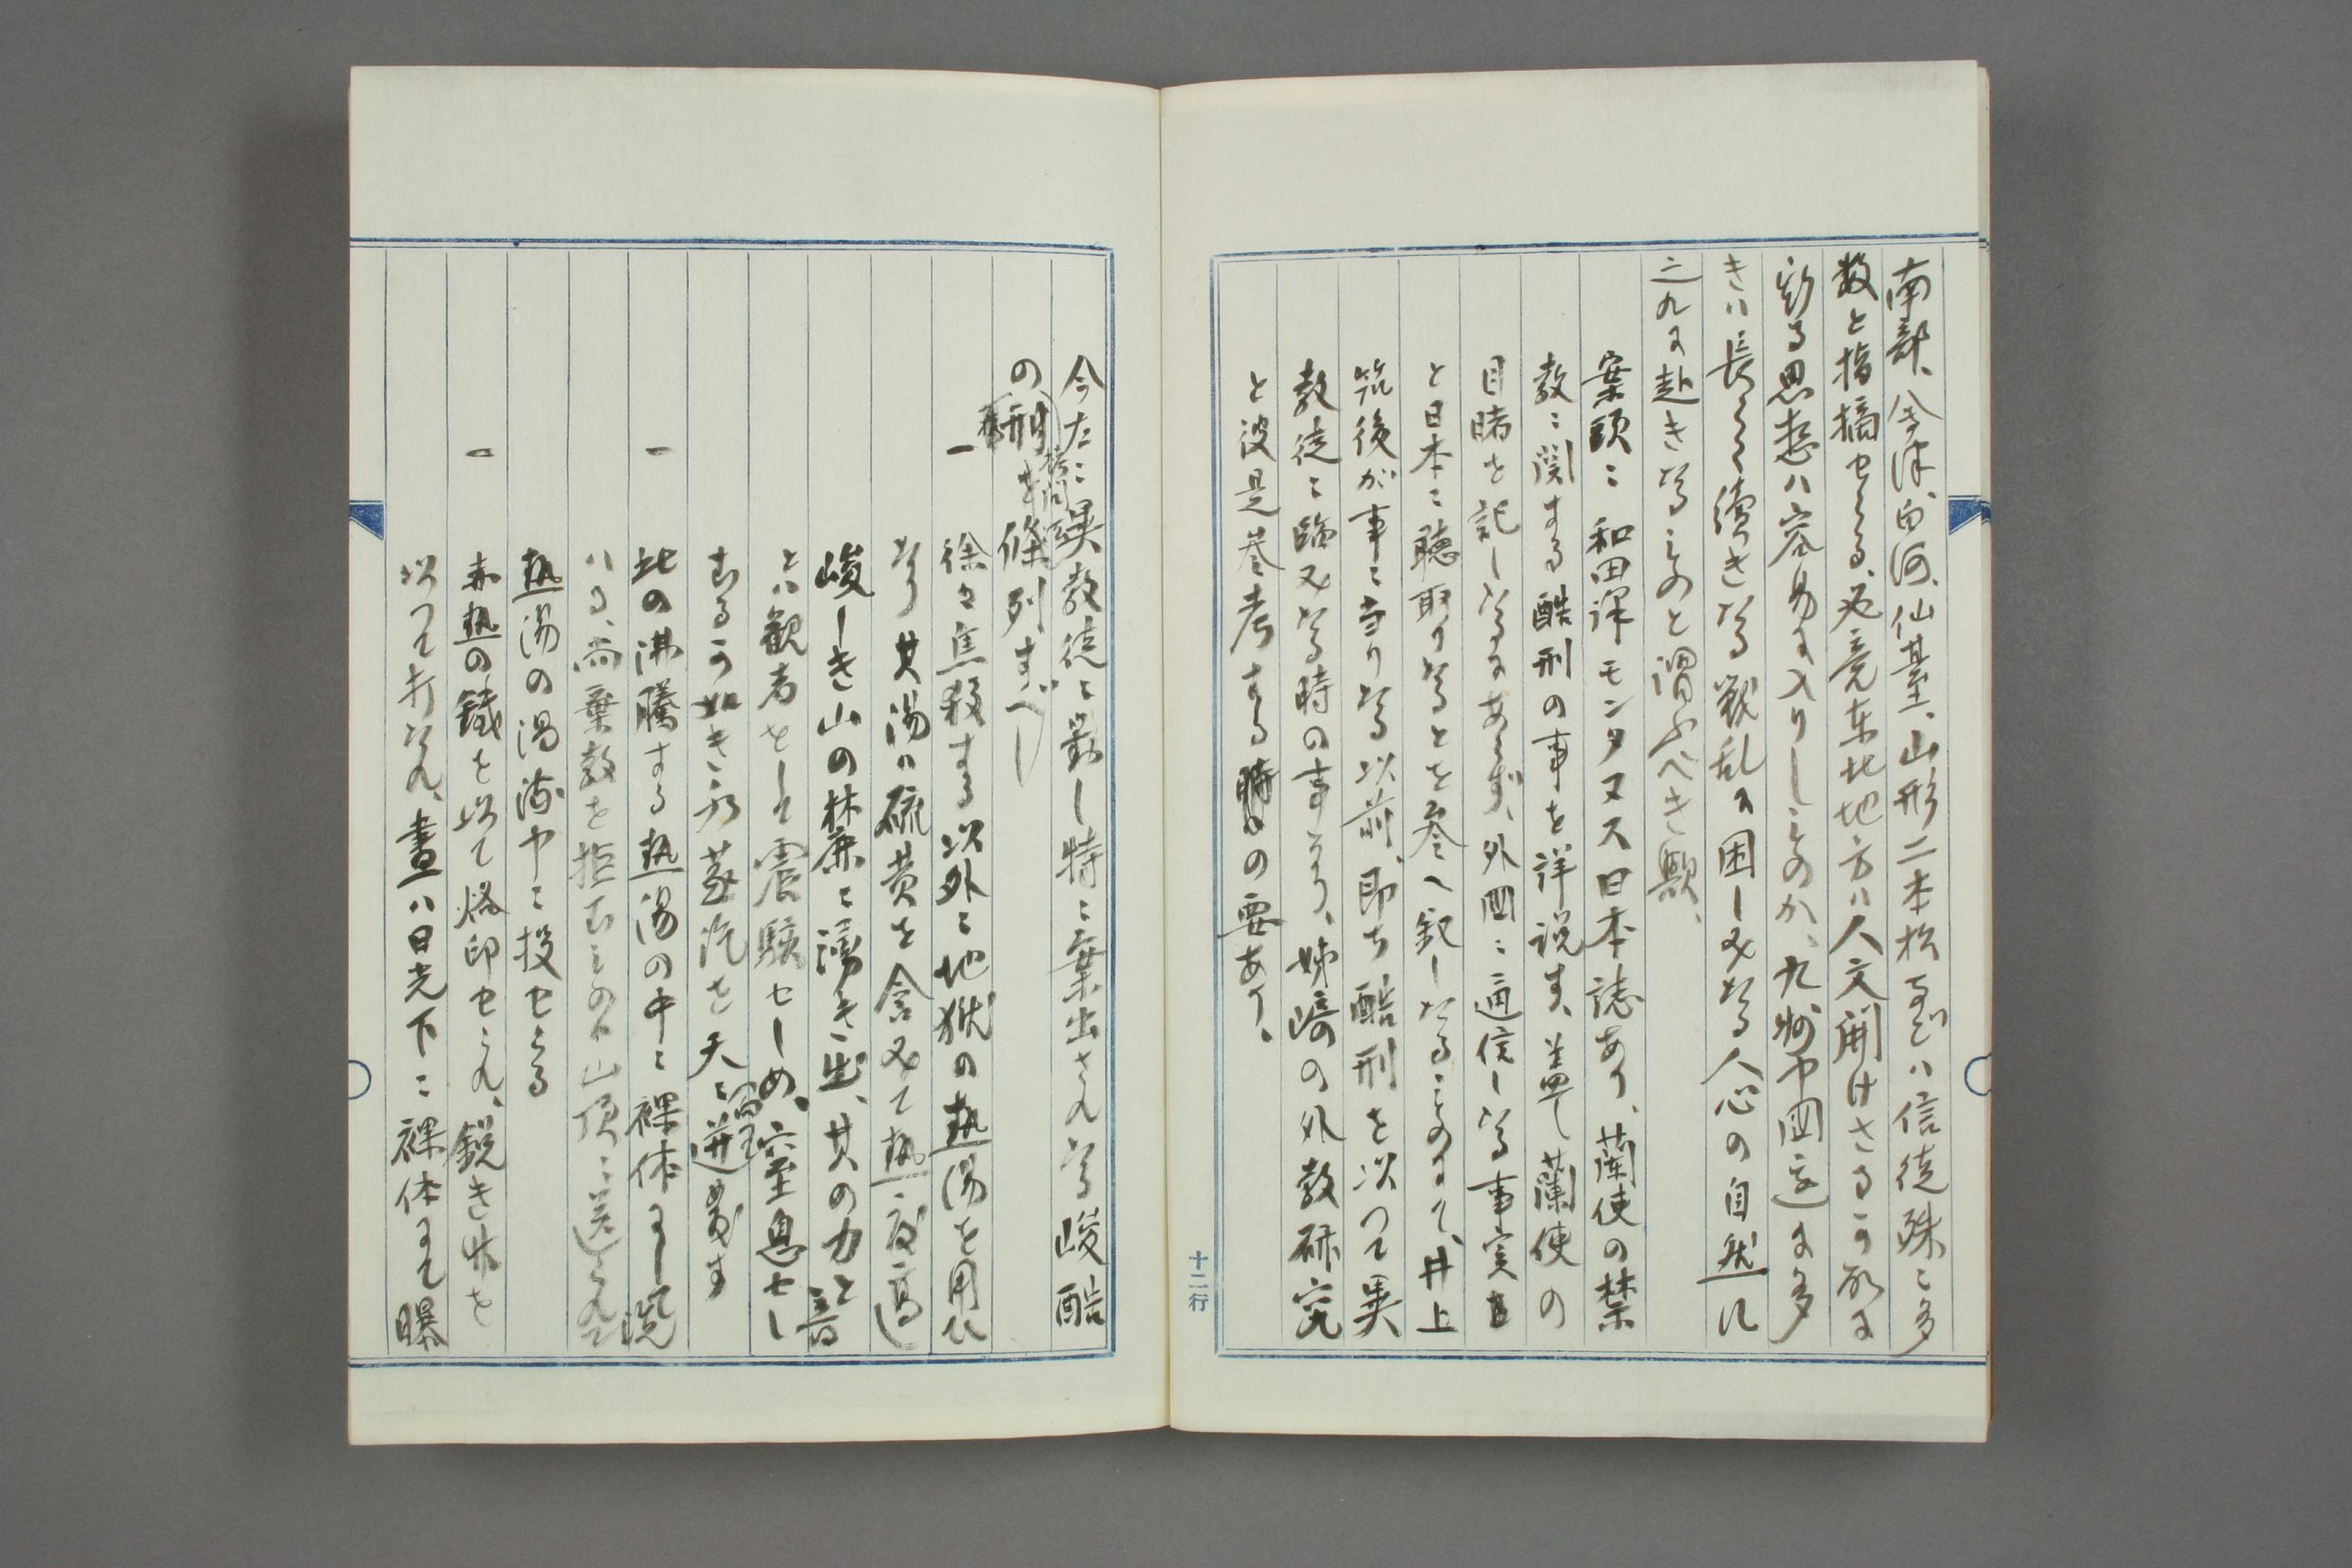 南部、会津、白河、仙台、山形二本松などハ信徒殊ニ多
数と指摘せらる、畢竟東北地方ハ人文開けさるの故に
斯る思想ハ容易に入りしものか、九州中国辺に多
きハ長らく続きなる戦乱に困しみなる人心の自然ニ
之れに赴きなるものと謂ふべき歟、
案頭ニ和田訳モンタヌス日本誌あり、蘭使の禁
教ニ関する酷刑の事を詳説す、蓋し蘭使の
目睹を記しなるにあらず、外国ニ通信しなる事実
と日本ニ聴取りなるとを参へ叙しなるものにて、井上
筑後が事ニ当りなる以前、即ち酷刑を以つて異
教徒ニ臨みなる時の事なり、姉崎の外教研究
と彼是参考する時の要あり、
十二行
今左ニ異教徒ニ対し特ニ案出されなる峻酷
の刑を條列すべし
一 徐々焦殺する以外ニ地獄の熱湯を用ひ
なり其湯ハ硫黄を含みて熱度高し
峻しき山の林麓ニ湧き出、其の力と音
とハ観者をして震駭せしめ、窒息せし
むるの如き 蒸汽を天ニ迸発す
一 此の沸騰する熱湯の中ニ裸体にし
ハる、尚棄教を拒むものハ山頂ニ送られ
熱湯の 中ニ投せらる
一 赤熱の鉄を以て烙印せられ、鋭き を
以つて打なれ、昼ハ日光下ニ裸体にて曝